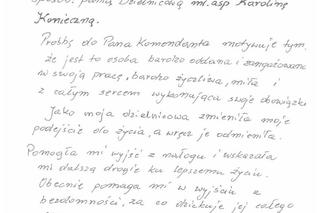 sposób panią Dzielnicową mł.asp Karolinę
Konieczną.
Prośbę do Pana Komendanta motywuję tym,
że jest to osoba bardzo oddana i zaangażowana
w swoją pracę, bardzo życzliwa, miła i
z całym sercem wykonująca swoje obowiązki
Jako moja dzielnicowa zmieniła moje
podejście do życia, a wręcz je odmieniła.
Pomogła mi wyjść z nałogu i wskazała
mi dalszą drogie ku lepszemu życiu.
Obecnie pomaga mi w wyjściu z
bezdomności, za co dziękuje jej całego